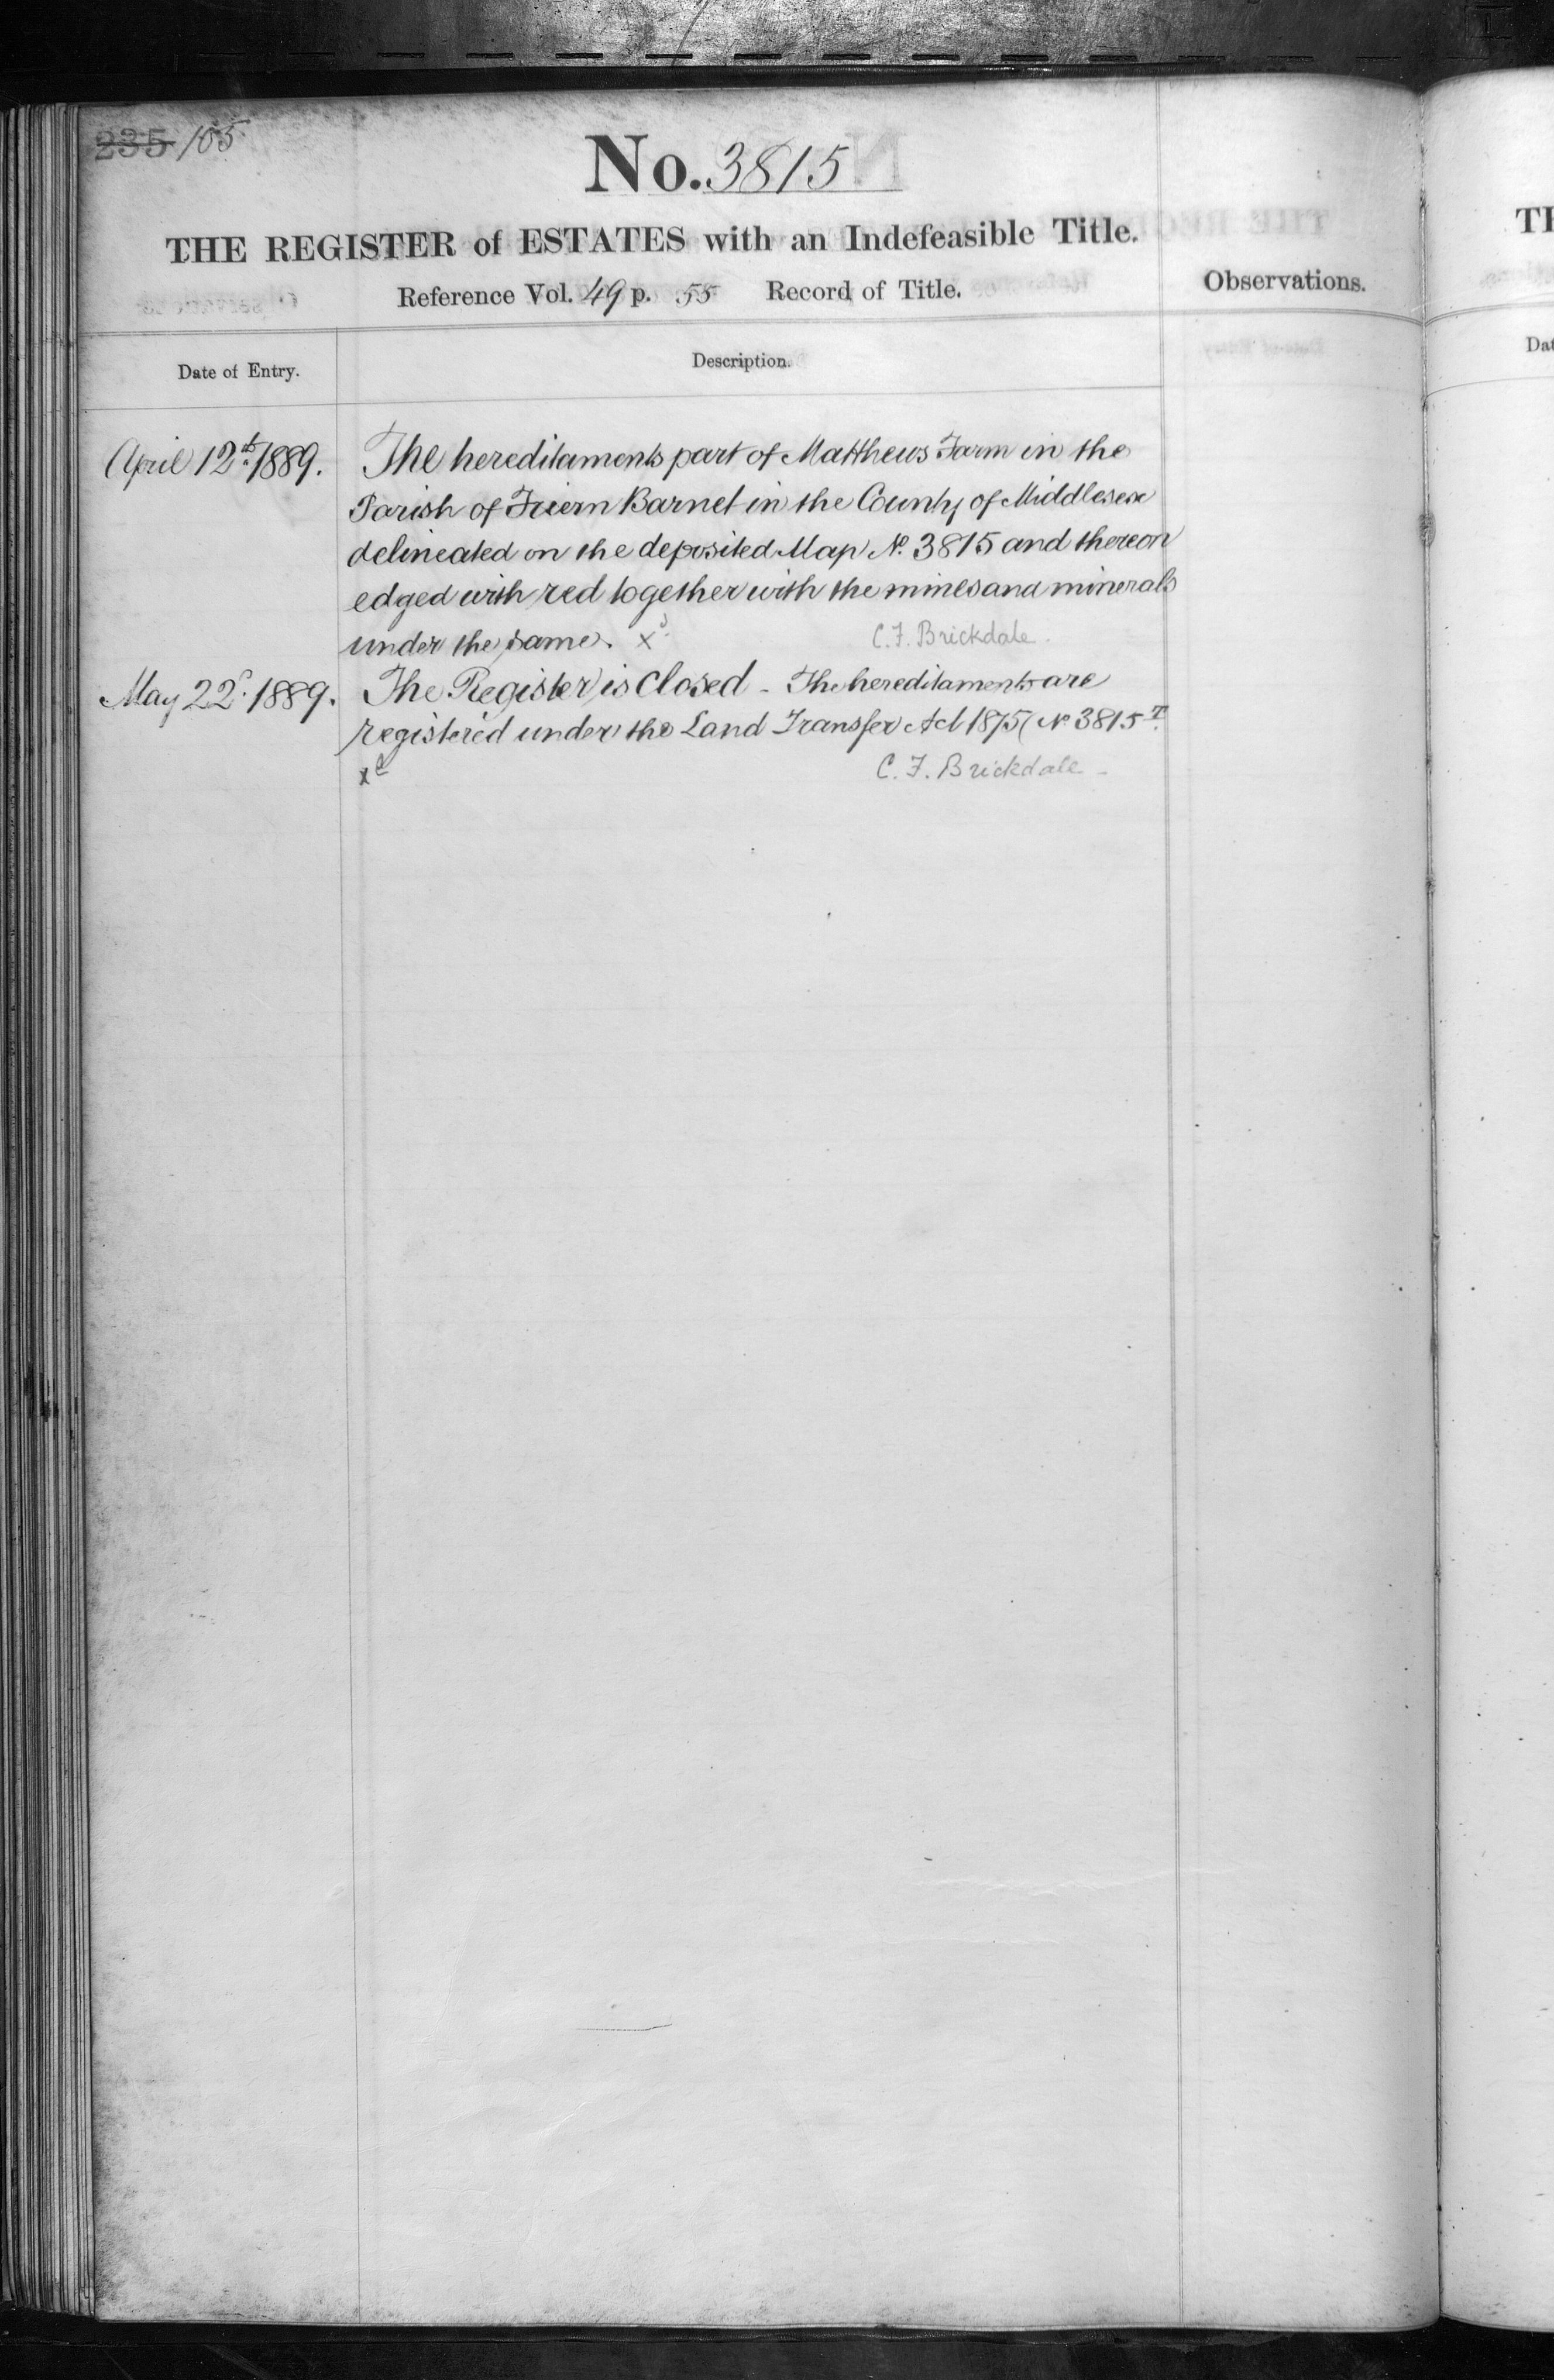 235 105
No. 3815
THE REGISTER of ESTATES with an Indefeasible Title.
Reference Vol. 49 p. 55 Record of Title.
Observations.
Date of Entry.
Description.
April 12th 1889.
The hereditaments part of Matthews Farm in the
Parish of Friern Barnet in the County of Middlesex
delineated on the deposited Map No. 3815 and thereon
edged with red together with the mines and minerals
under the same. xd.
C. F. Brickdale.
May 22d. 1889.
The Register is Closed - The hereditaments are
registered under the Land Transfer Act 1875 (No 3815T.
xd
C. F. Brickdale -